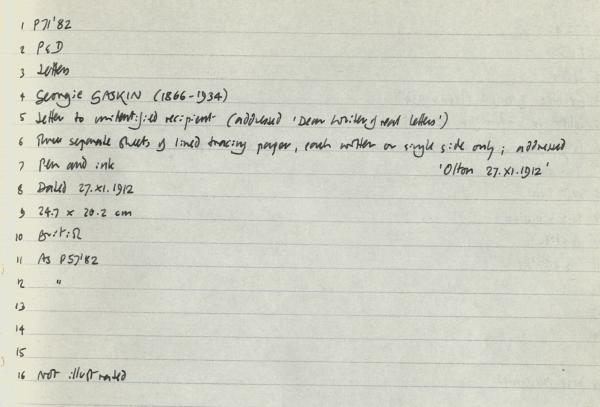 1 P71'82
2 P&D
3 Letters
4 Georgie GASKIN (1866-1934)
5 Letter to unidentified recipient (addressed 'Dear Writer of real letters')
6 Three separate sheets of lined tracing paper, each written on single side only; addressed
'Olton 27.XI.1912'
7 Pen and ink
8 Dated 27.XI.1912
9 24.7 x 20.2 cm
10 British
11 As P57'82
12 "
13
14
15
16 Not illustrated